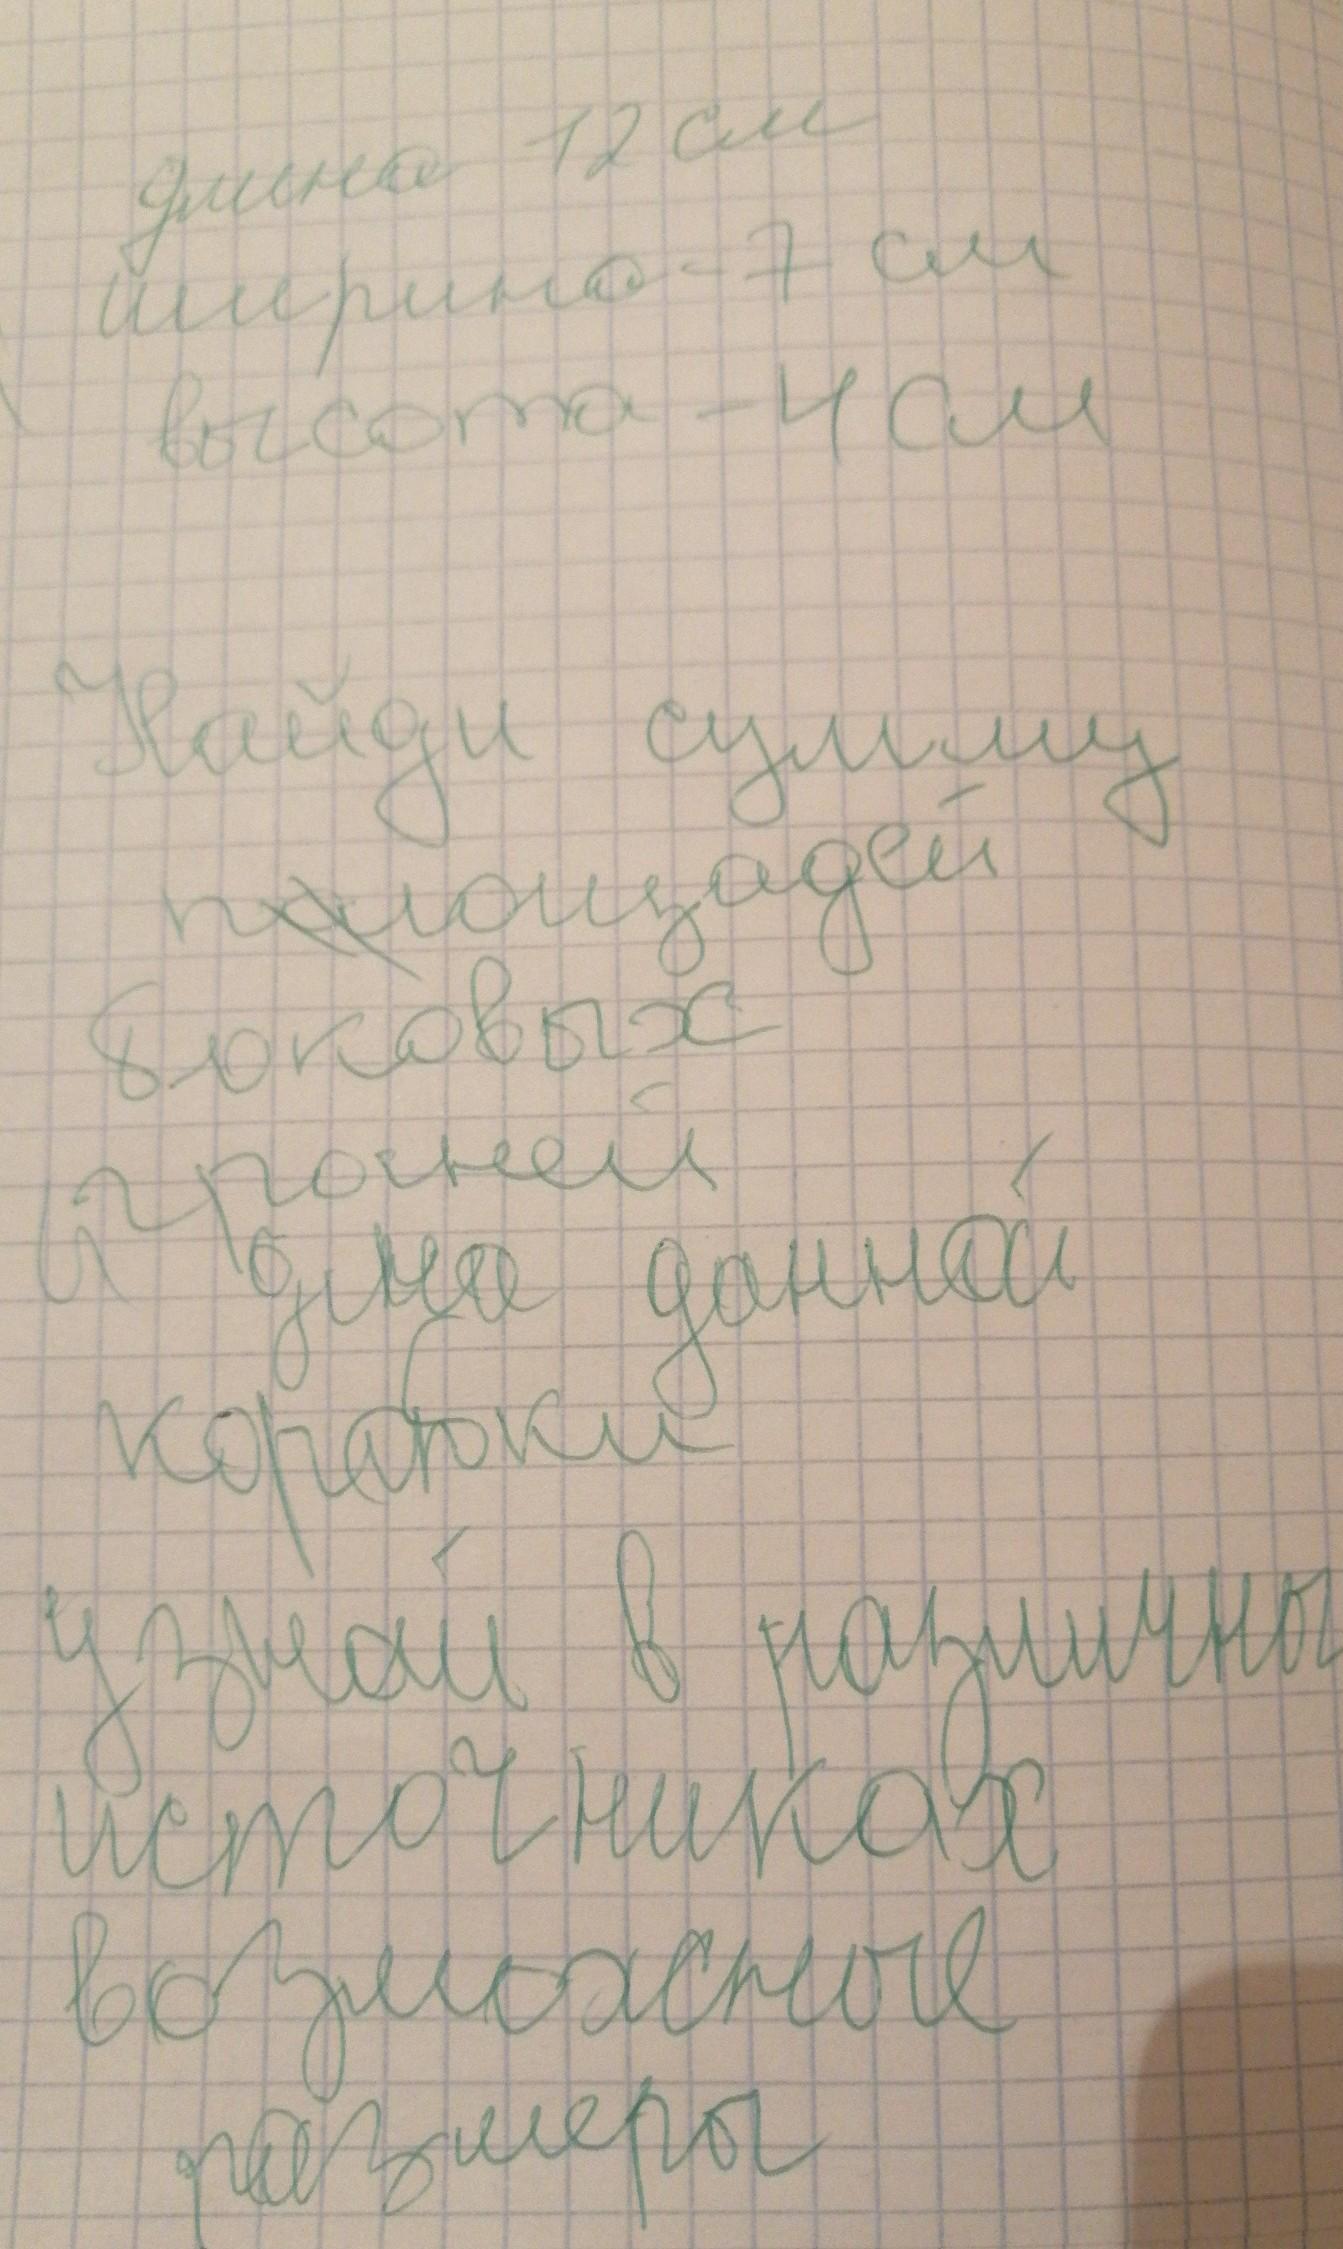 длина 12 см
ширина - 7 см
высота - 4 см
Найди сумму
площадей
боковых
граней
и дна данной
коробки
узнай в различны
источниках
возможные
размеры